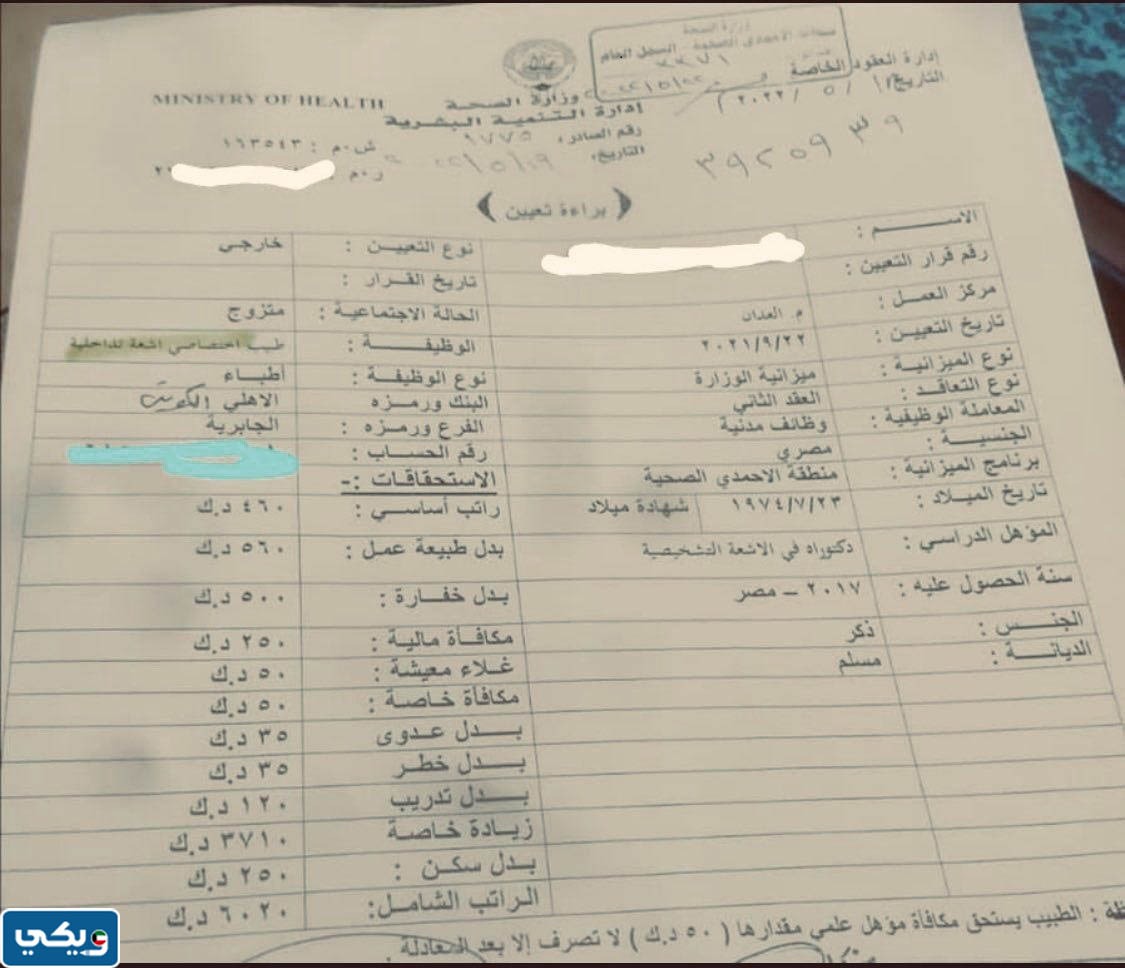 وزارة الصحة
منطقة الاحمدي الصحية - السجل العام
٣٣٧١
إدارة العقود الخاصة
التاريخ ١ / ٥ / ٢٠٢٢
MINISTRY OF HEALTH
وزارة الصحة
إدارة التنمية البشرية
رقم الصادر: ٩٧٧٥
التاريخ:
ش.م : ١٦٣٥٤٣
ر.م
٣٩٢٥٩٣٩
( براءة تعيين )
الاســـــم :
نوع التعيين : خارجي
رقم قرار التعيين :
تاريخ القرار :
مركز العمل : م. العدان
الحالة الاجتماعية : متزوج
تاريخ التعيين : ٢٠٢١/٩/٢٢
الوظيفـــــة : طبيب اختصاصي اشعة تداخلية
نوع الميزانية : ميزانية الوزارة
نوع الوظيفـة : أطباء
نوع التعاقد : العقد الثاني
البنك ورمزه الاهلي الكويتي
المعاملة الوظيفية : وظائف مدنية
الفرع ورمزه : الجابرية
الجنسيـــة : مصري
رقم الحساب :
برنامج الميزانية : منطقة الاحمدي الصحية
الاستحقاقات :-
تاريخ الميلاد : ١٩٧٤/٧/٢٣ شهادة ميلاد
راتب أساسي : ٤٦٠ د.ك
المؤهل الدراسي : دكتوراه في الاشعة التشخيصية
بدل طبيعة عمل : ٥٦٠ د.ك
سنة الحصول عليه : ٢٠١٧ – مصر
بدل خفارة : ٥٠٠ د.ك
الجنـــس : ذكر
مكافأة مالية : ٢٥٠ د.ك
الديانـــة : مسلم
غلاء معيشة : ٥٠ د.ك
مكافأة خاصة : ٥٠ د.ك
بـــدل عدوى ٣٥ د.ك
بـــدل خطر ٣٥ د.ك
بـــدل تدريب ١٢٠ د.ك
زيادة خاصة ٣٧١٠ د.ك
بدل سكن : ٢٥٠ د.ك
الراتب الشامل: ٦٠٢٠ د.ك
: الطبيب يستحق مكافأة مؤهل علمي مقدارها ( ٥٠ د.ك ) لا تصرف إلا بعد المعادلة .
ويكي